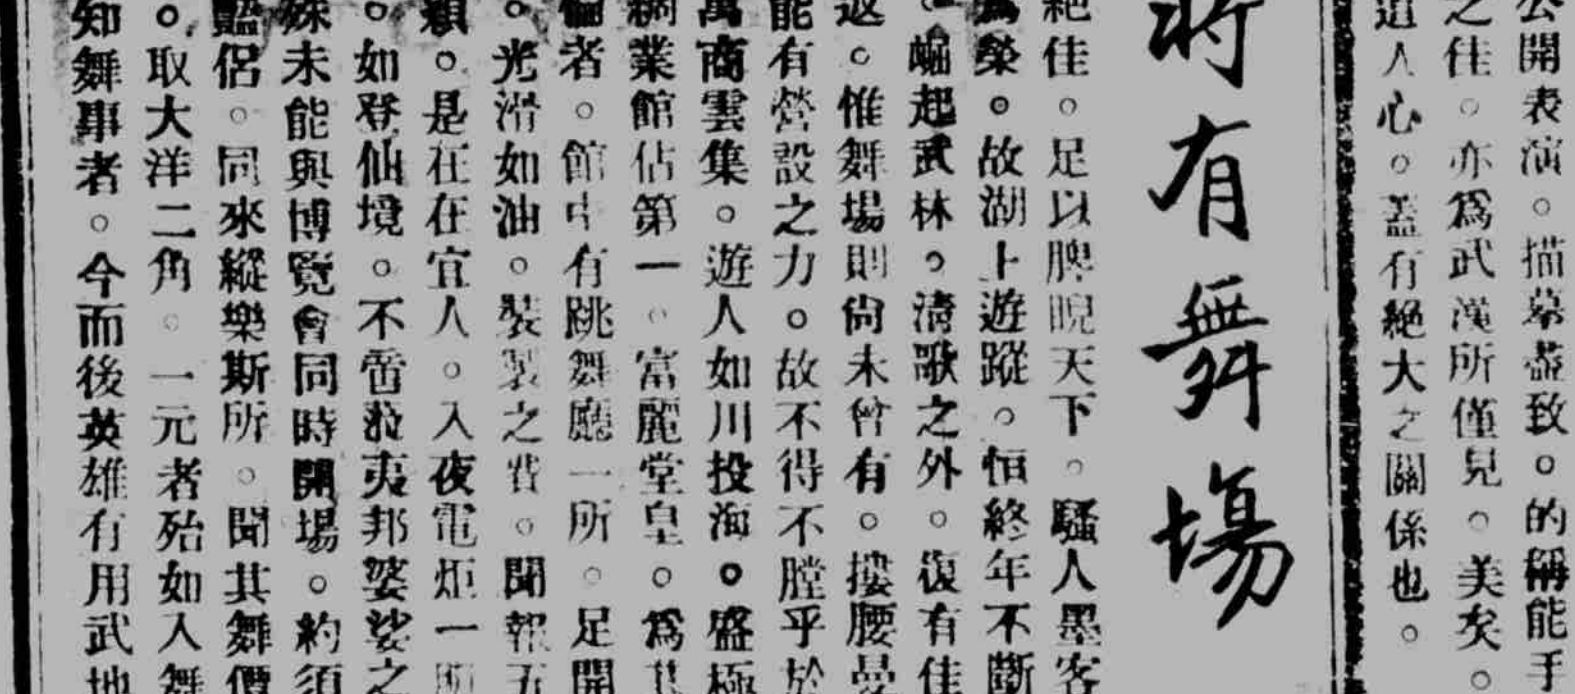 公開表演。描摹盡致。的稱能手
之佳。亦爲武漢所僅見。美矣。
道人心。蓋有絕大之關係也。
將有舞場
絕佳。足以脾睨天下。騷人墨客
爲榮。故湖上遊蹤。恒終年不斷
。崛起武林。清歌之外。復有佳
返。惟舞場則尙未曾有。摟腰曼
能有營設之力。故不得不膛乎於
萬商雲集。遊人如川投海。盛極
綢業館佔第一。富麗堂皇。爲其
者。館中有跳舞廳一所。足開
。光滑如油。裝製之費。聞報五
。是在在宜人。入夜電炬一
。如登仙境。不啻放夷邦婆娑之
殊未能與博覽會同時開場。約須
豔侶。同來縱樂斯所。聞其舞價
。取大洋二角。一元者殆如入舞
知舞事者。今而後英雄有用武地